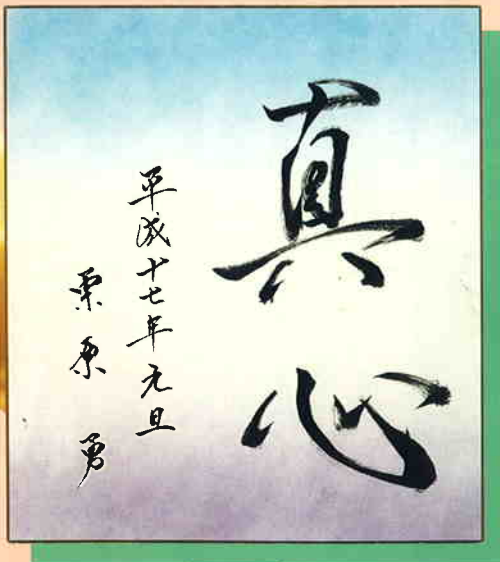 真心
平成十七年元旦
栗原 勇